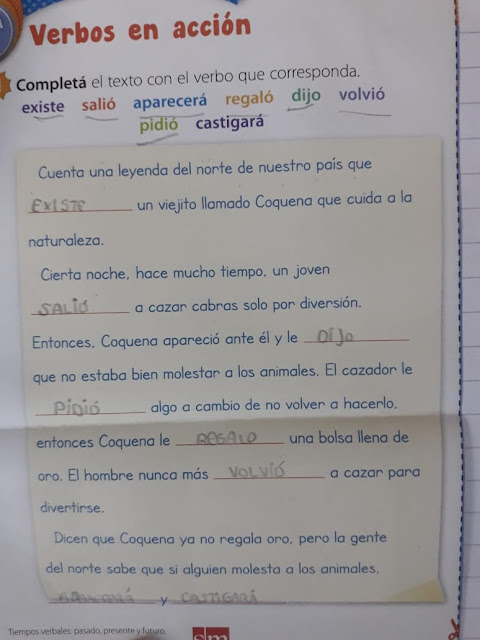 Verbos en acción
Completá el texto con el verbo que corresponda.
existe salió aparecerá regaló dijo volvió
pidió castigará
Cuenta una leyenda del norte de nuestro país que
EXISTE un viejito llamado Coquena que cuida a la
naturaleza.
Cierta noche, hace mucho tiempo, un joven
SALIÓ a cazar cabras solo por diversión.
Entonces, Coquena apareció ante él y le DIJO
que no estaba bien molestar a los animales. El cazador le
PIDIÓ algo a cambio de no volver a hacerlo,
entonces Coquena le REGALO una bolsa llena de
oro. El hombre nunca más VOLVIÓ a cazar para
divertirse.
Dicen que Coquena ya no regala oro, pero la gente
del norte sabe que si alguien molesta a los animales,
APARECERÁ y CASTIGARÁ
Tiempos verbales: pasado, presente y futuro.
sm